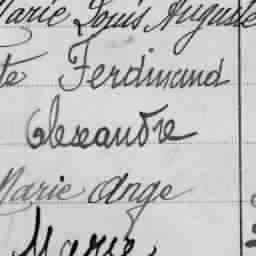 Marie Louis Auguste
te Ferdinand
Alexandre
Marie Ange
Marie